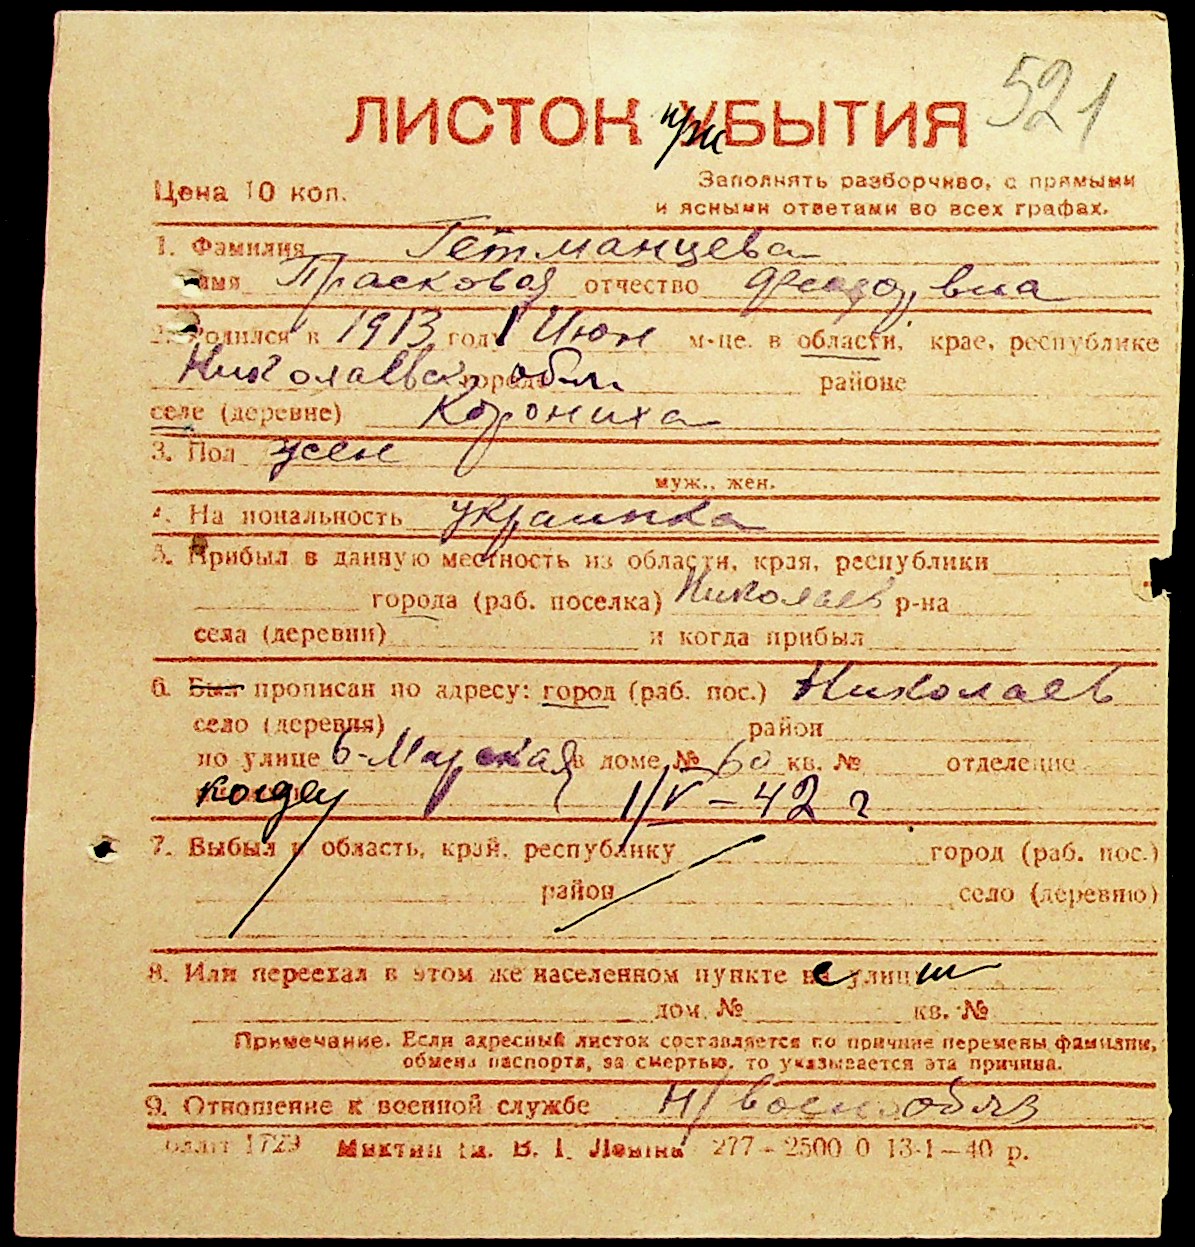 521
ЛИСТОК при УБЫТИЯ
Цена 10 коп.
Заполнять разборчиво, с прямыми
и ясными ответами во всех графах.
1. Фамилия Гетманцева
имя Прасковая отчество
2. Родился в 1913 году 1 Июн м-це. в области, крае, республике
Николаевск. города обл. районе
селе (деревне) Корониха
3. Пол жен
муж., жен.
4. На иональность украинка
5. Прибыл в данную местность из области, края, республики
города (раб. поселка) Николаев р-на
села (деревни) и когда прибыл
6. Был прописан по адресу: город (раб. пос.) Николаев
село (деревня) район
по улице 6-Марская в доме № 60 кв. № отделение
1/V-42 г
7. Выбыл в область, край, республику город (раб. пос.)
район село (деревню)
8. Или переехал в этом же населенном пункте с улиц
дом. № кв. №
Примечание. Если адресный листок составляется по причине перемены фамилии,
обмена паспорта, за смертью, то указывается эта причина.
9. Отношение к военной службе н/воен обяз
1723 им. В. І. Леніна 277-2500 0 13-1-40 р.